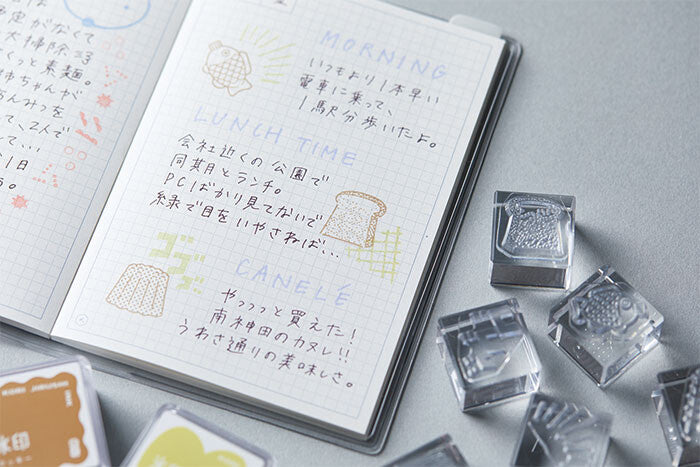 定がなくて
大掃除
っと素麺。
姉ちゃんが
あんみつを
って、2人で
1日
MORNING
いつもより1本早い
電車に乗って、
1駅分歩いたよ。
LUNCH TIME
会社近くの公園で
同期とランチ。
PCばかり見てないで
緑で目をいやさねば...
CANELÉ
やっっっと買えた!
南神田のカヌレ!!
うわさ通りの美味しさ。
印